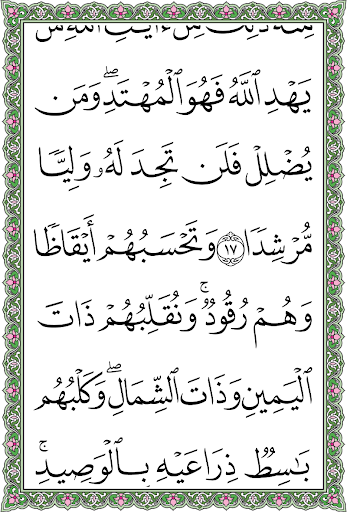 مِنْهُ ذَٰلِكَ مِنْ ءَايَٰتِ ٱللَّهِ مَن
يَهْدِ ٱللَّهُ فَهُوَ ٱلْمُهْتَدِ ۖ وَمَن
يُضْلِلْ فَلَن تَجِدَ لَهُۥ وَلِيًّا
مُّرْشِدًا ١٧ وَتَحْسَبُهُمْ أَيْقَاظًا
وَهُمْ رُقُودٌ ۚ وَنُقَلِّبُهُمْ ذَاتَ
ٱلْيَمِينِ وَذَاتَ ٱلشِّمَالِ ۖ وَكَلْبُهُم
بَٰسِطٌ ذِرَاعَيْهِ بِٱلْوَصِيدِ ۚ